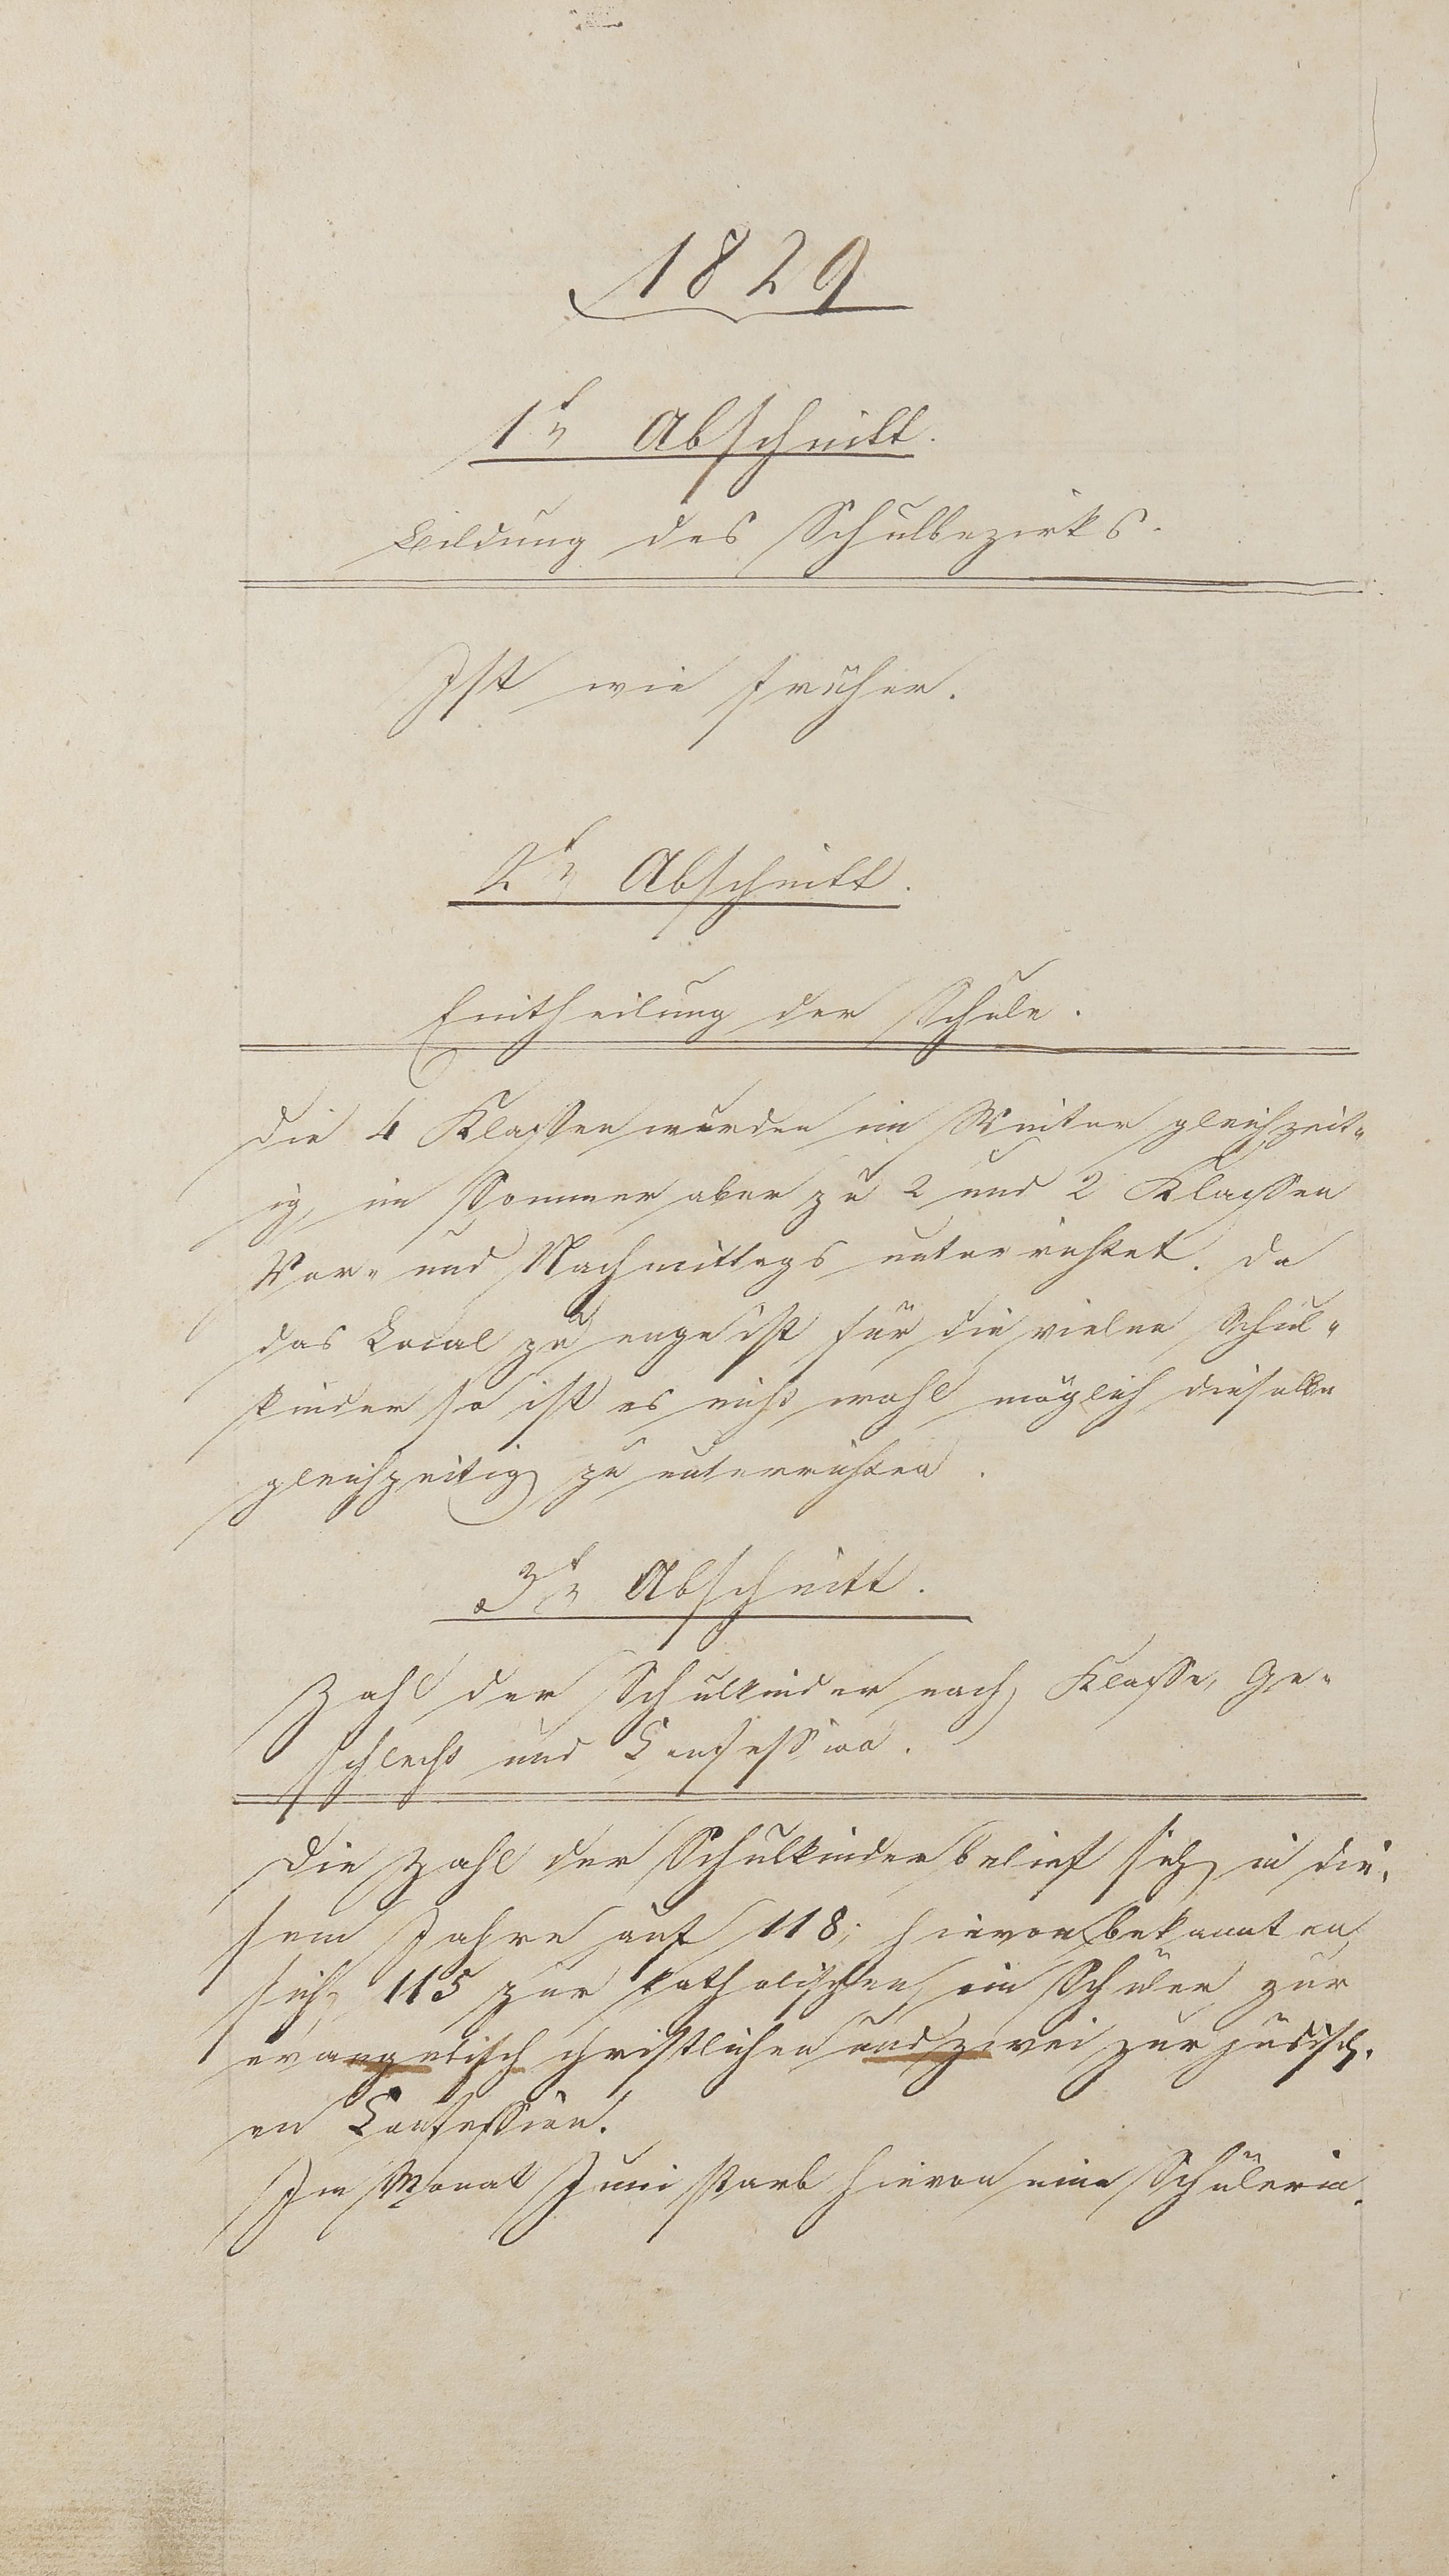 1829
1r Abschnitt.
Bildung des Schulbezirks.
Ist wie früher.
2r Abschnitt.
Eintheilung der Schule.
Die 4 Klassen wurden im Winter gleichzeit-
ig, im Sommer aber zu 2 und 2 Klassen
Vor- und Nachmittags unterrichtet. Da
das Local zu enge ist für die vielen Schul-
kinder so ist es nicht wohl möglich dieselbe
gleichzeitig zu unterrichten.
3r Abschnitt.
Zahl der Schulkinder nach Klasse, Ge-
schlecht und Confession.
Die Zahl der Schulkinder belief sich in die-
sem Jahre auf 118; hievon bekannten
sich, 115 zur katholischen, ein Schüler zur
evangelisch christlichen und zwei zur jüdisch-
en Confession.
Im Monat Juni starb hievon eine Schülerin.